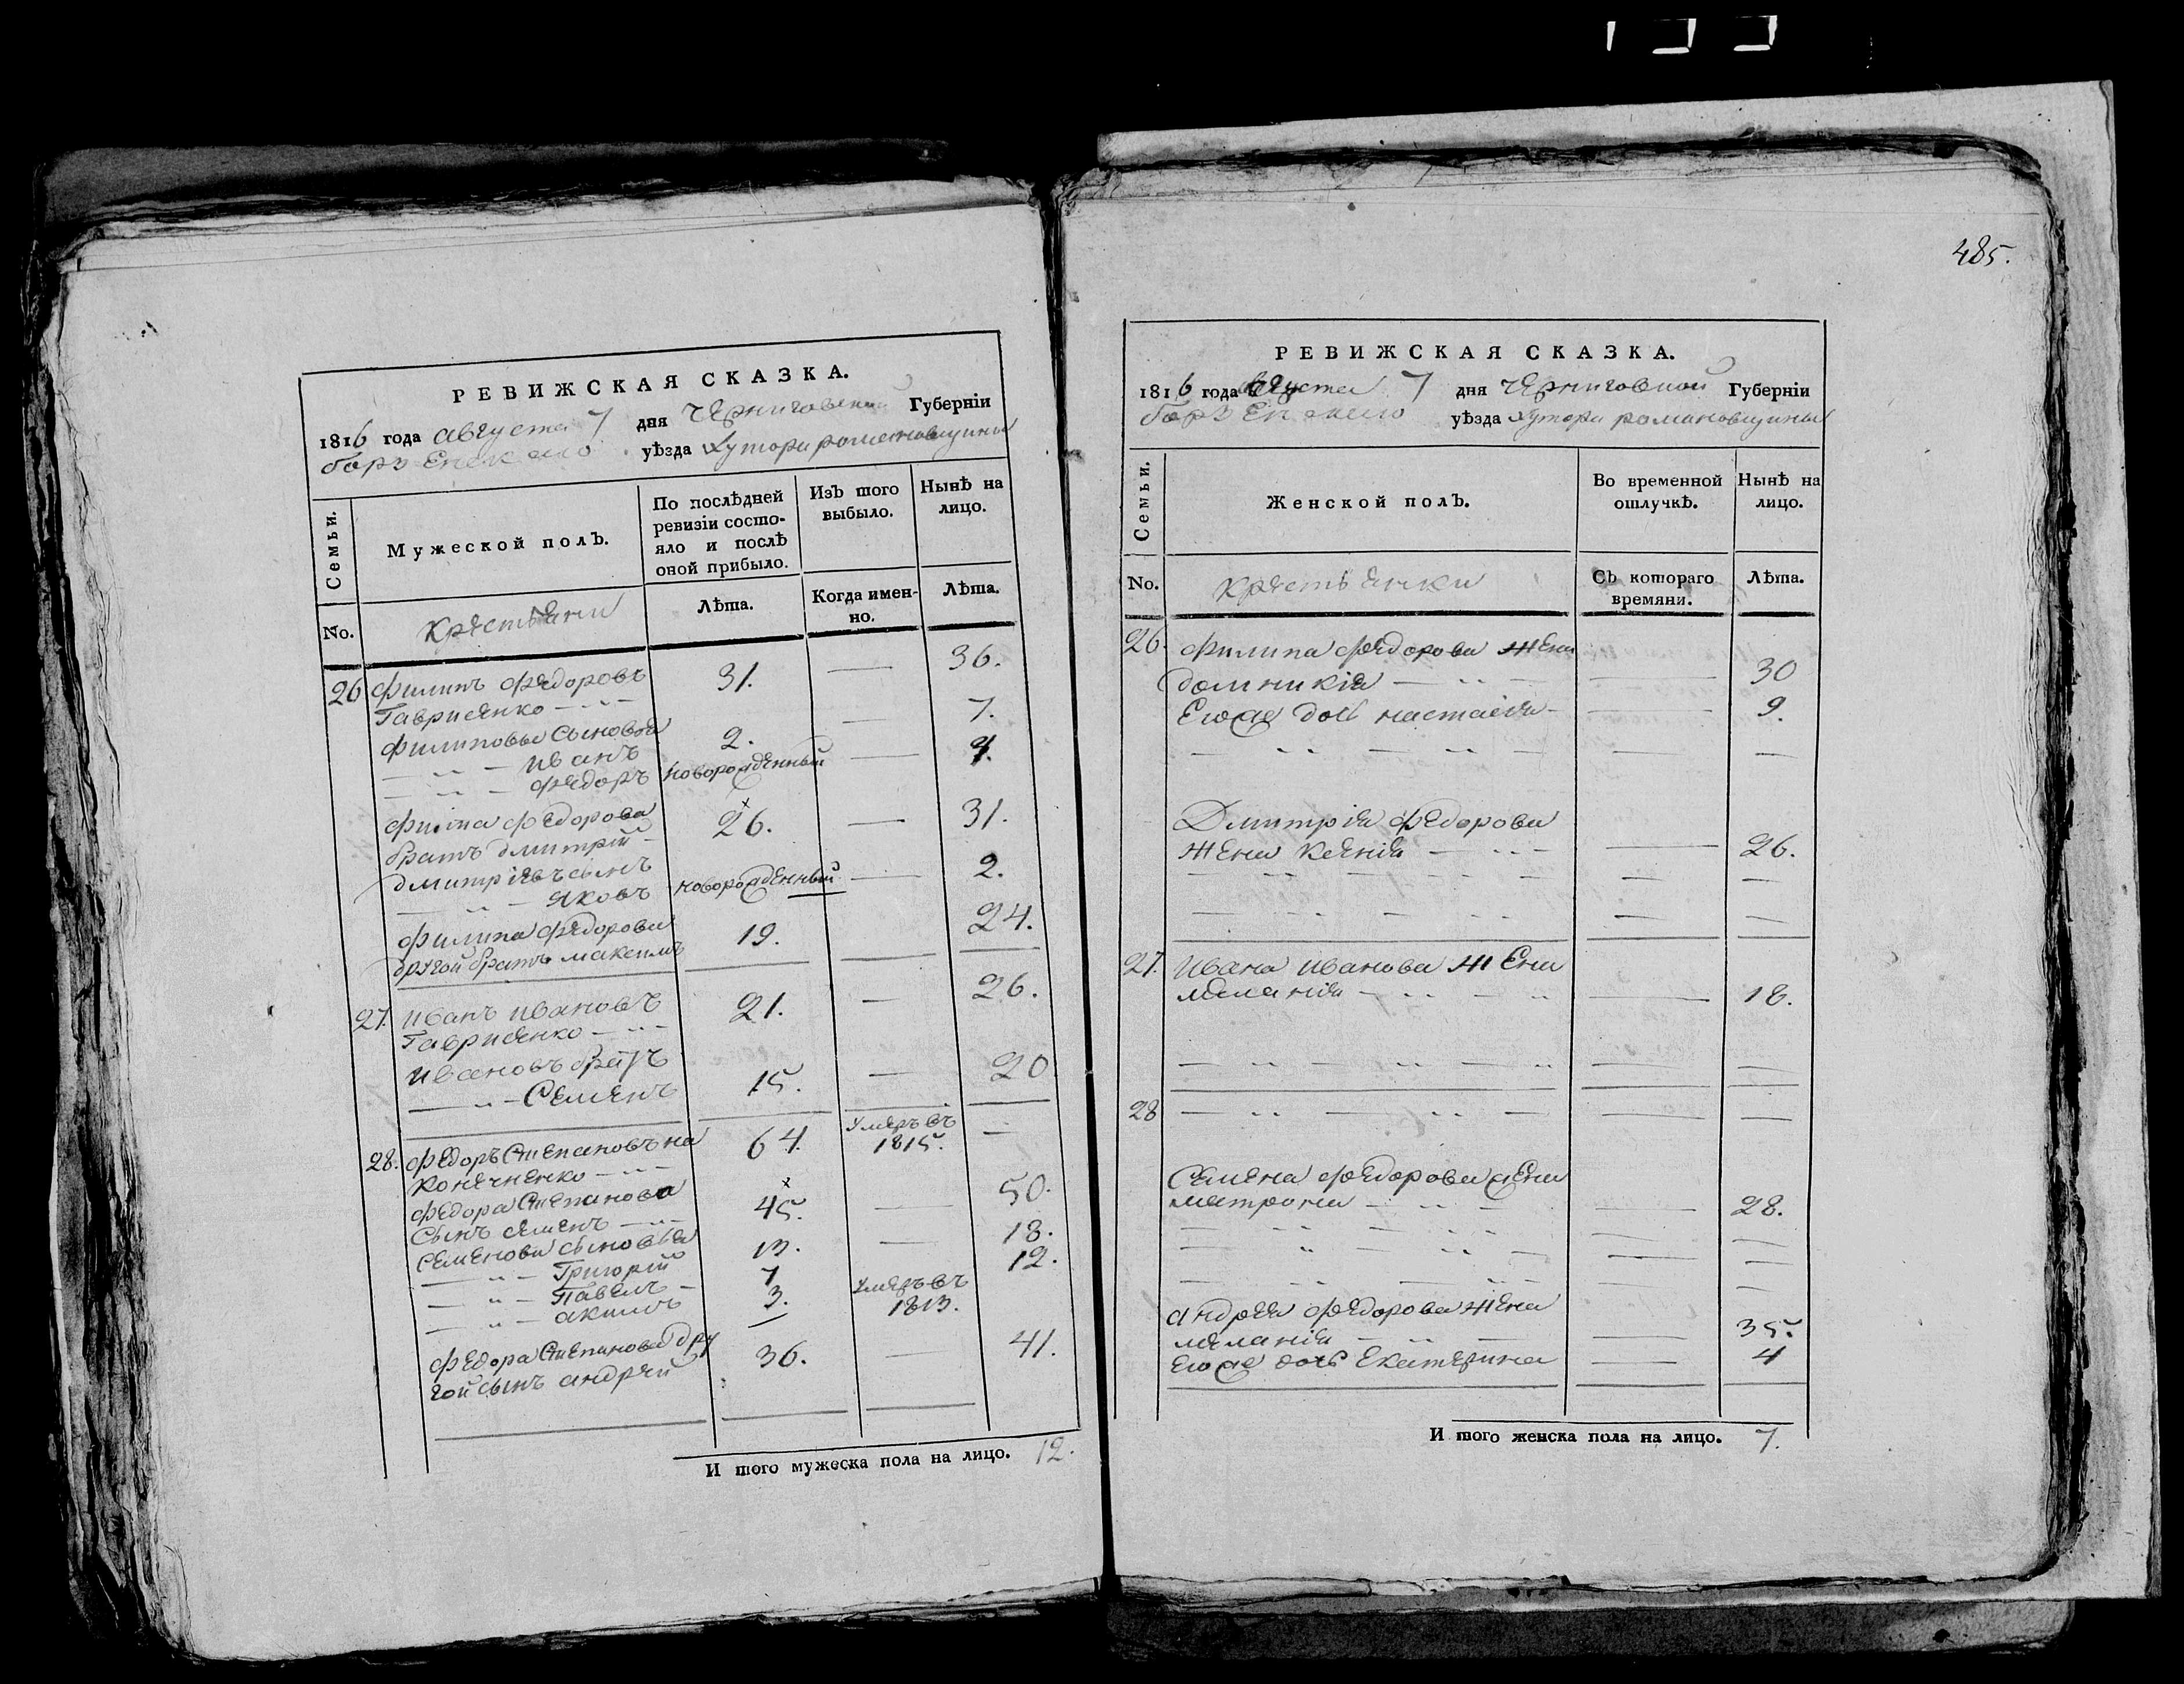 485.
РЕВИЖСКАЯ СКАЗКА.
1816 года августа 7 дня Черниговской Губерніи
борзенского уѣзда хутора романовщины
Семьи.
Мужеской полЪ.
По послѣдней ревизіи состояло и послѣ оной прибыло.
ИзЪ того выбыло.
НынѣЪ на лицо.
No.
крестьяни
Лѣта.
Когда именно.
Лѣта.
26 филипъ федоровъ 31. — 36.
Гаврисенко
филиповы сыновья
иванъ 2. — 7.
федоръ новорожденный — 4.
филипа федорова
братъ дмитрій 26. — 31.
дмитріевъ сынъ
яковъ новорожденный — 2.
филипа федорова
другой братъ максимъ 19. — 24.
27. иванъ ивановъ 21. — 26.
Гаврисенко
ивановъ братъ
Семенъ 15. — 20
28. федоръ Степановъ на 64. умеръ въ 1815. —
конечненко
федора Степанова
сынъ семенъ 45. — 50.
семенова сыновья
Григорій 13. — 18.
Павелъ 7 12.
акимъ 3. умеръ въ 1813.
федора Степанова дру
гой сынъ андрей 36. — 41.
И того мужеска пола на лицо. 12.
РЕВИЖСКАЯ СКАЗКА.
1816 года августа 7 дня Черниговской Губерніи
борзенского уѣзда хутора романовщины
Семьи.
Женской полЪ.
Во временной отлучкѣ.
Нынѣ на лицо.
No.
крестьянки
СЪ котораго времяни.
Лѣта.
26. филипа федорова жена
домникія — 30
Егоже дочь настасія — 9.
Дмитрія федорова
жена ксенія — 26.
27. ивана иванова жена
меланія — 18.
28
Семена федорова жена
матрона — 28.
андрея федорова жена
меланія — 35.
Егоже дочь Екатерина — 4
И того женска пола на лицо. 7.